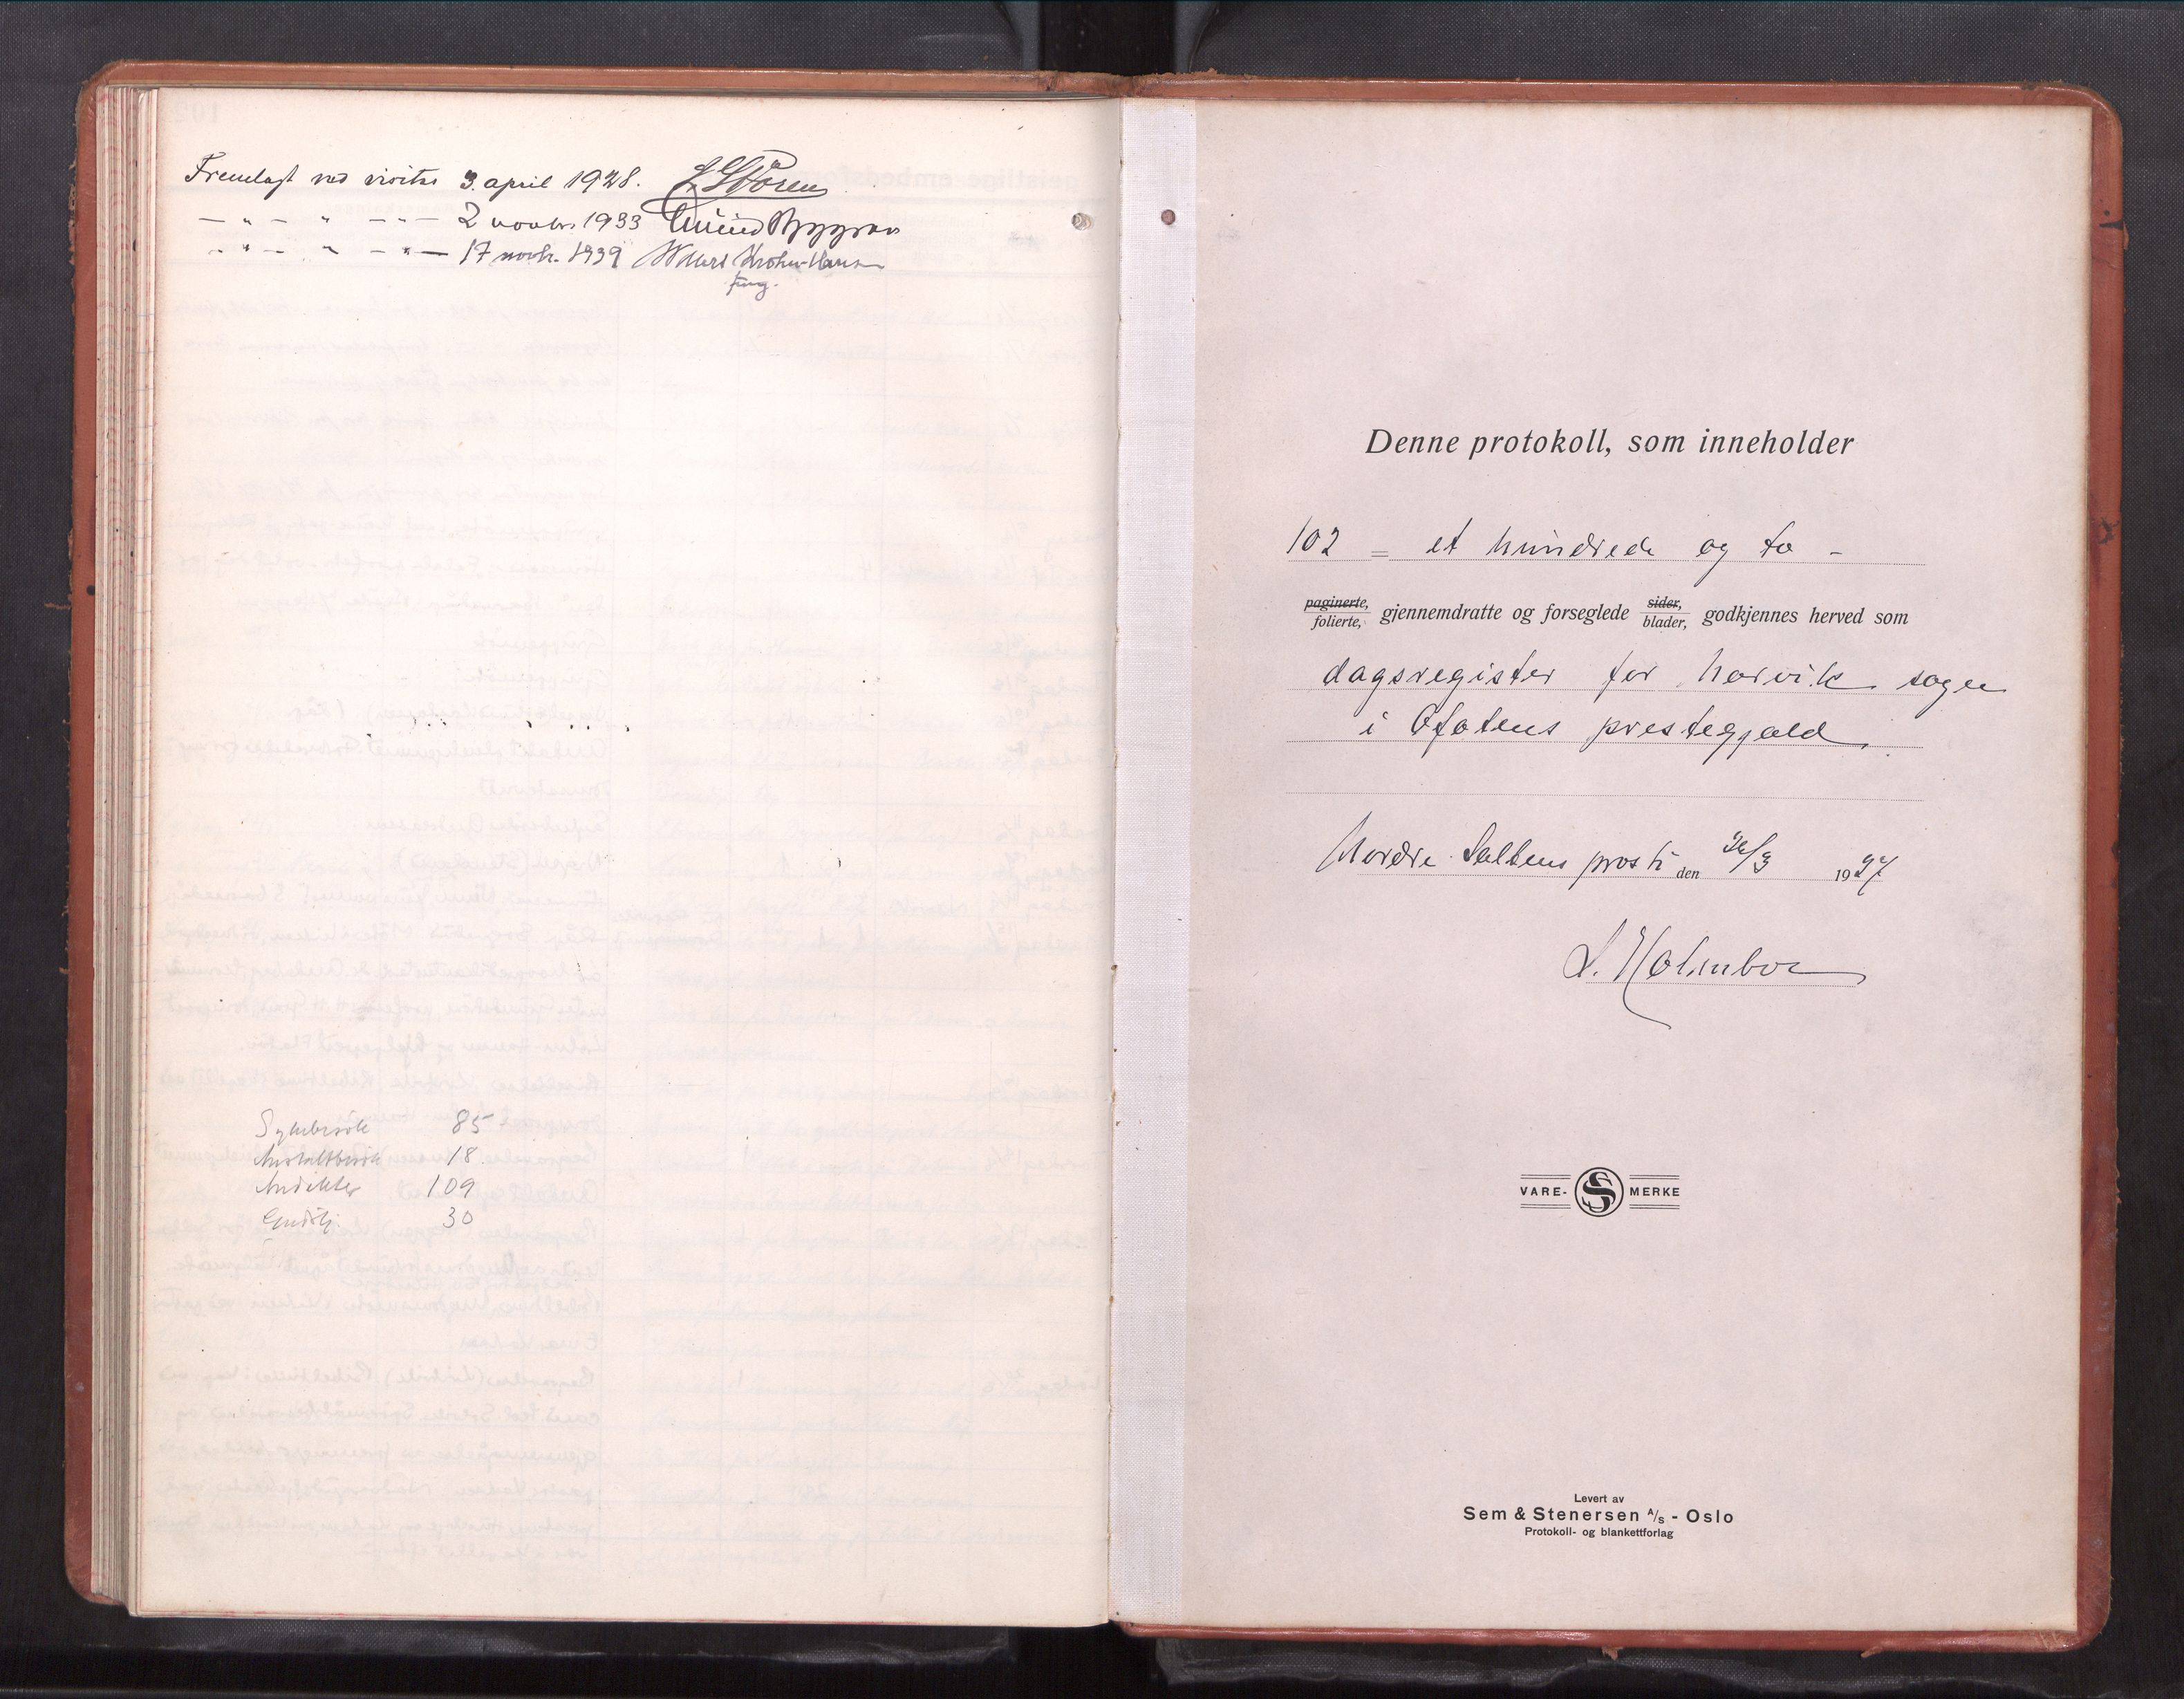 Fremlagt ved visitas 3. april 1928. J. Støren
— " — " — " — 2 novbr. 1933 Eivind Berggrav
— " — " — " — 17 novbr. 1939 Wollert Krohn-Hansen
fung.
Sykebesøk 85
Anstaltbesøk 18
Andakter 109
30
Denne protokoll, som inneholder
102 = et hundrede og to -
paginerte, folierte, gjennemdratte og forseglede sider, blader, godkjennes herved som
dagsregister for Narvik sogn
i Ofotens prestegjeld
Nordre Saltens prosti den 30/3 1927
L. Holmboe
VARE- S MERKE
Levert av
Sem & Stenersen A/s - Oslo
Protokoll- og blankettforlag